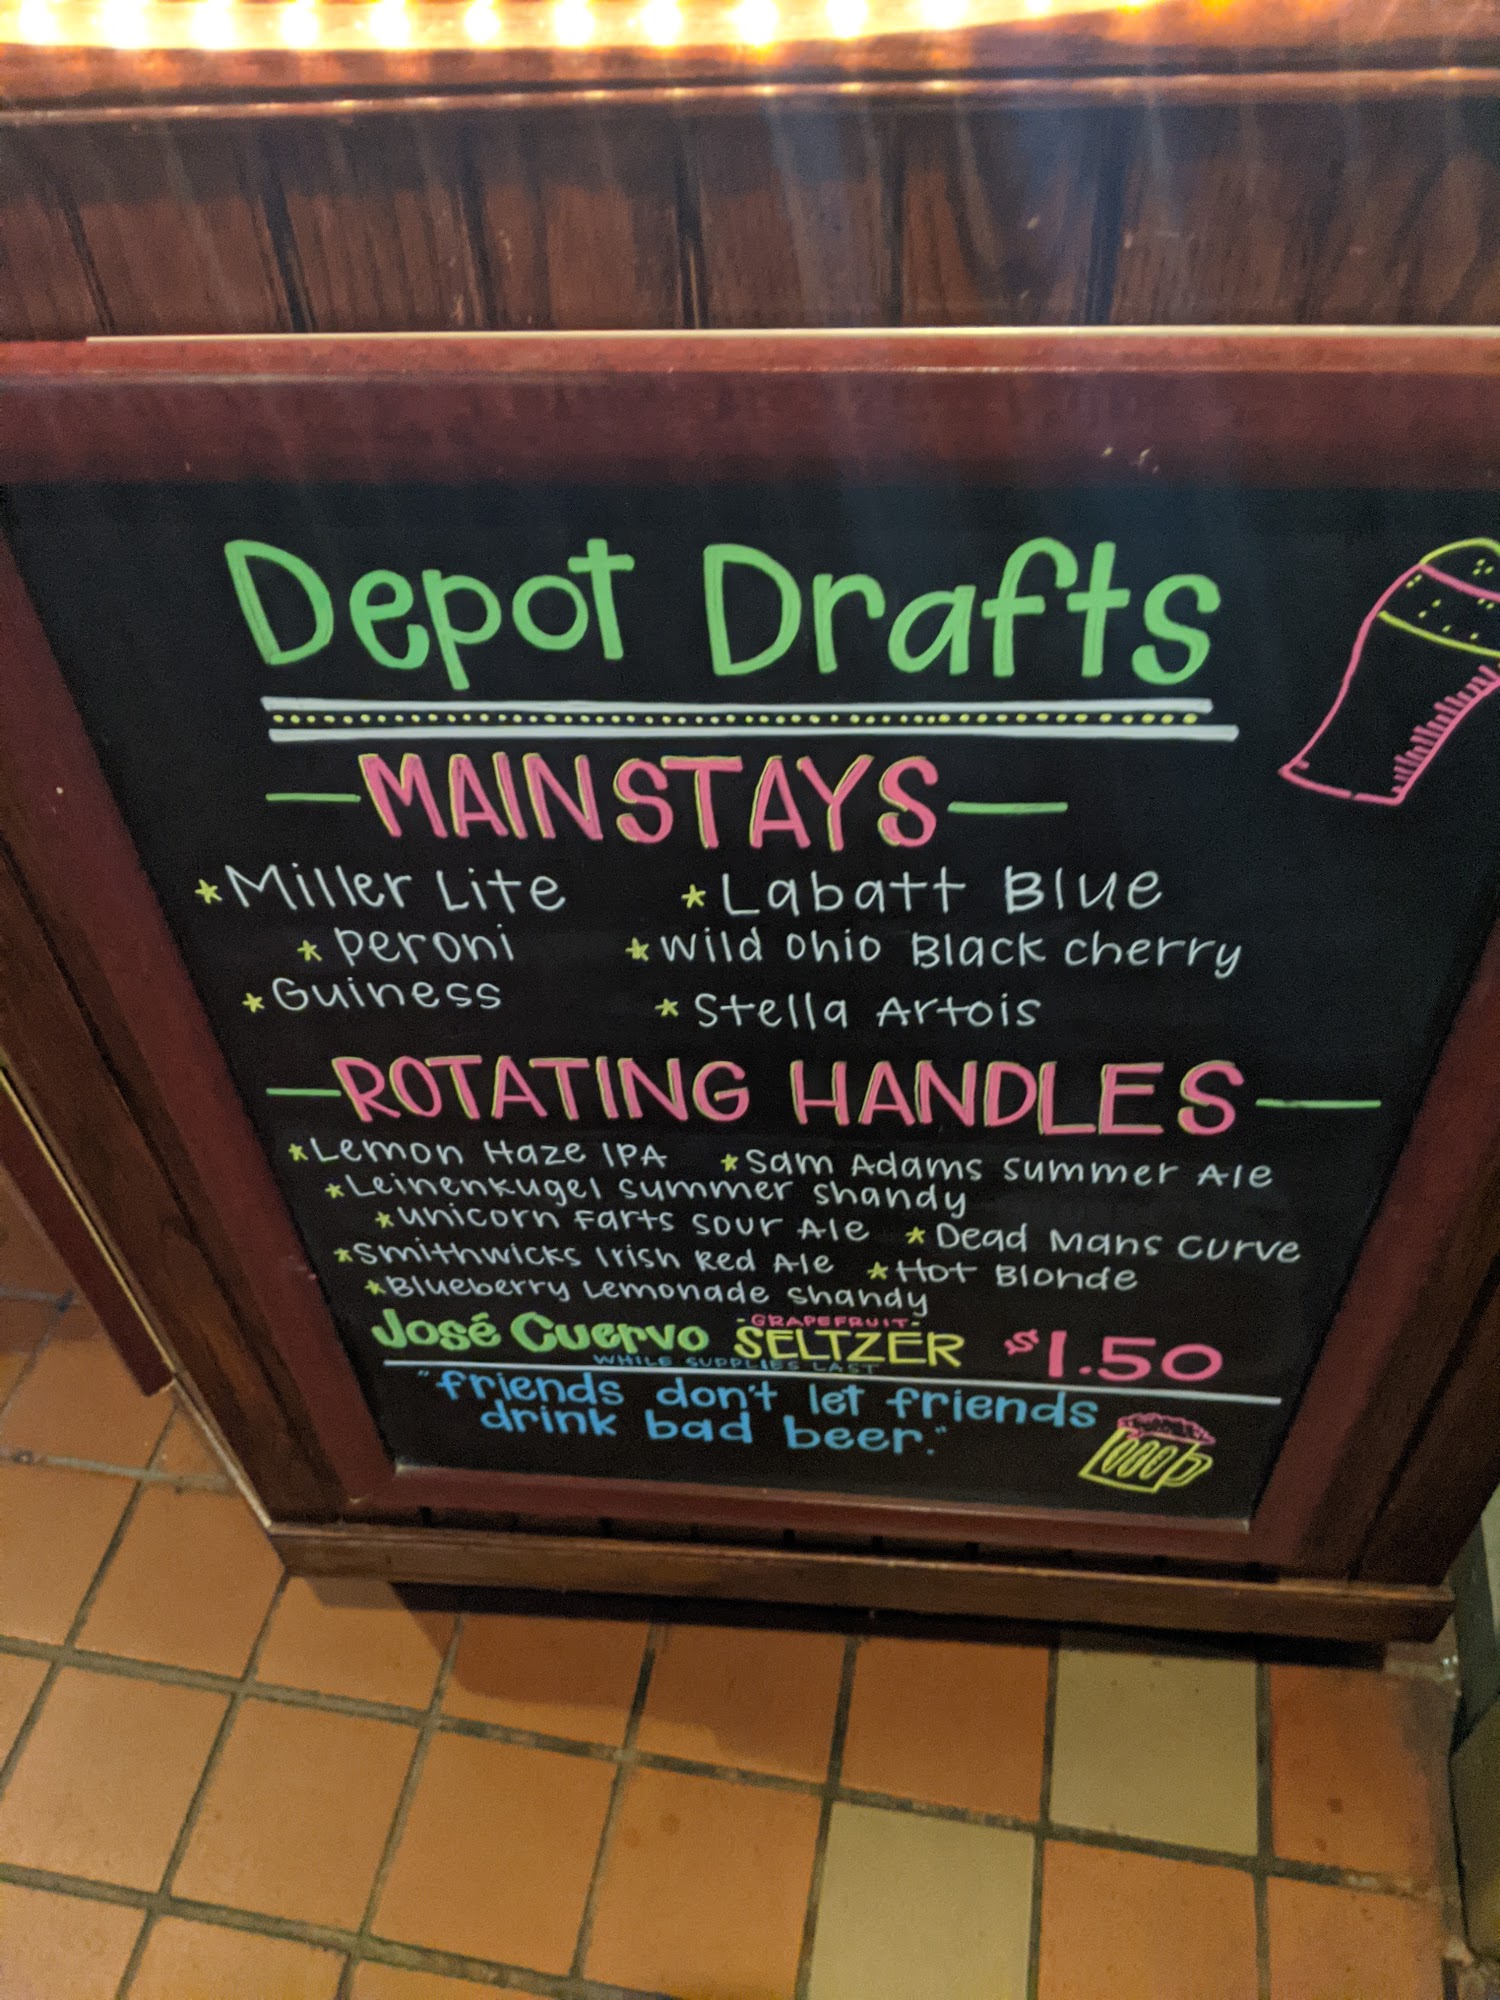 Depot Drafts
MAINSTAYS
*Miller Lite *Labatt Blue
*Peroni *Wild Ohio Black Cherry
*Guiness *Stella Artois
ROTATING HANDLES
*Lemon Haze IPA *Sam Adams Summer Ale
*Leinenkugel Summer Shandy
*Unicorn Farts Sour Ale *Dead Mans Curve
*Smithwicks Irish Red Ale *Hot Blonde
*Blueberry Lemonade Shandy
José Cuervo -GRAPEFRUIT- SELTZER $1.50
WHILE SUPPLIES LAST
"friends don't let friends
drink bad beer."